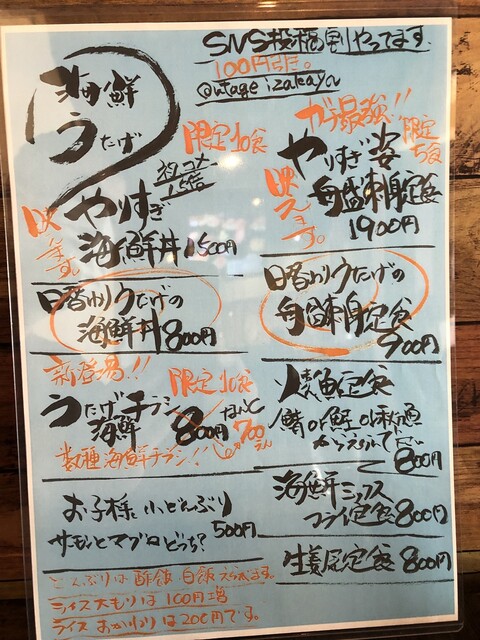 SNS投稿割やってます
100円引き。
@utage izakaya
海鮮
うたげ
限定10食
やりすぎ
海鮮丼 1500円
映えます。
ガチ最強!!
限定5食
やりすぎ姿
舟盛刺身定食
1900円
映えます。
日替わりうたげの
海鮮丼 800円
日替わりうたげの
舟盛刺身定食
900円
新登場!!
限定10食
うたげチラシ
海鮮
800円
700
数種海鮮チラシ!
焼魚定食
800円
お子様 小どんぶり
500円
サーモンとマグロどっち?
海鮮ミックス
フライ定食 800円
生姜焼定食 800円
どんぶりは酢飯 白飯えらべます。
ライス大もりは100円増
ライスおかわりは200円です。